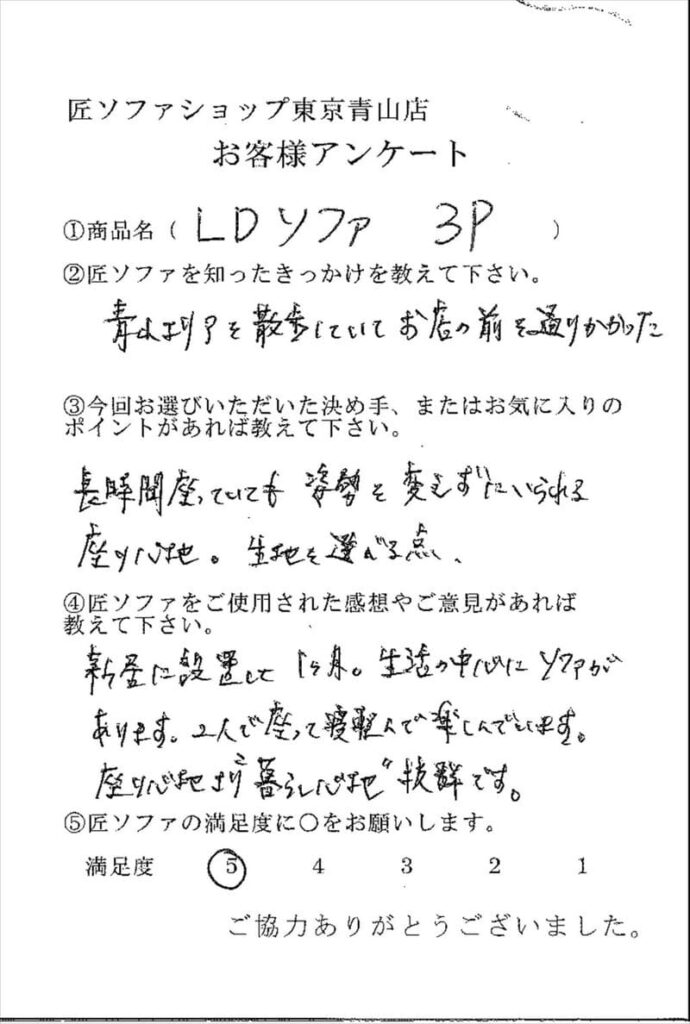 匠ソファショップ東京青山店
お客様アンケート
①商品名（ LDソファ 3P ）
②匠ソファを知ったきっかけを教えて下さい。
青山エリアを散歩していてお店の前を通りかかった
③今回お選びいただいた決め手、またはお気に入りの
ポイントがあれば教えて下さい。
長時間座っていても 姿勢を変えずにいられる
座り心地。生地を選べる点、
④匠ソファをご使用された感想やご意見があれば
教えて下さい。
新居に設置して 1ヶ月。生活の中心にソファが
あります。2人で座って寝転んで楽しんでいます。
座り心地より"暮らし心地"抜群です。
⑤匠ソファの満足度に〇をお願いします。
満足度 5 4 3 2 1
ご協力ありがとうございました。